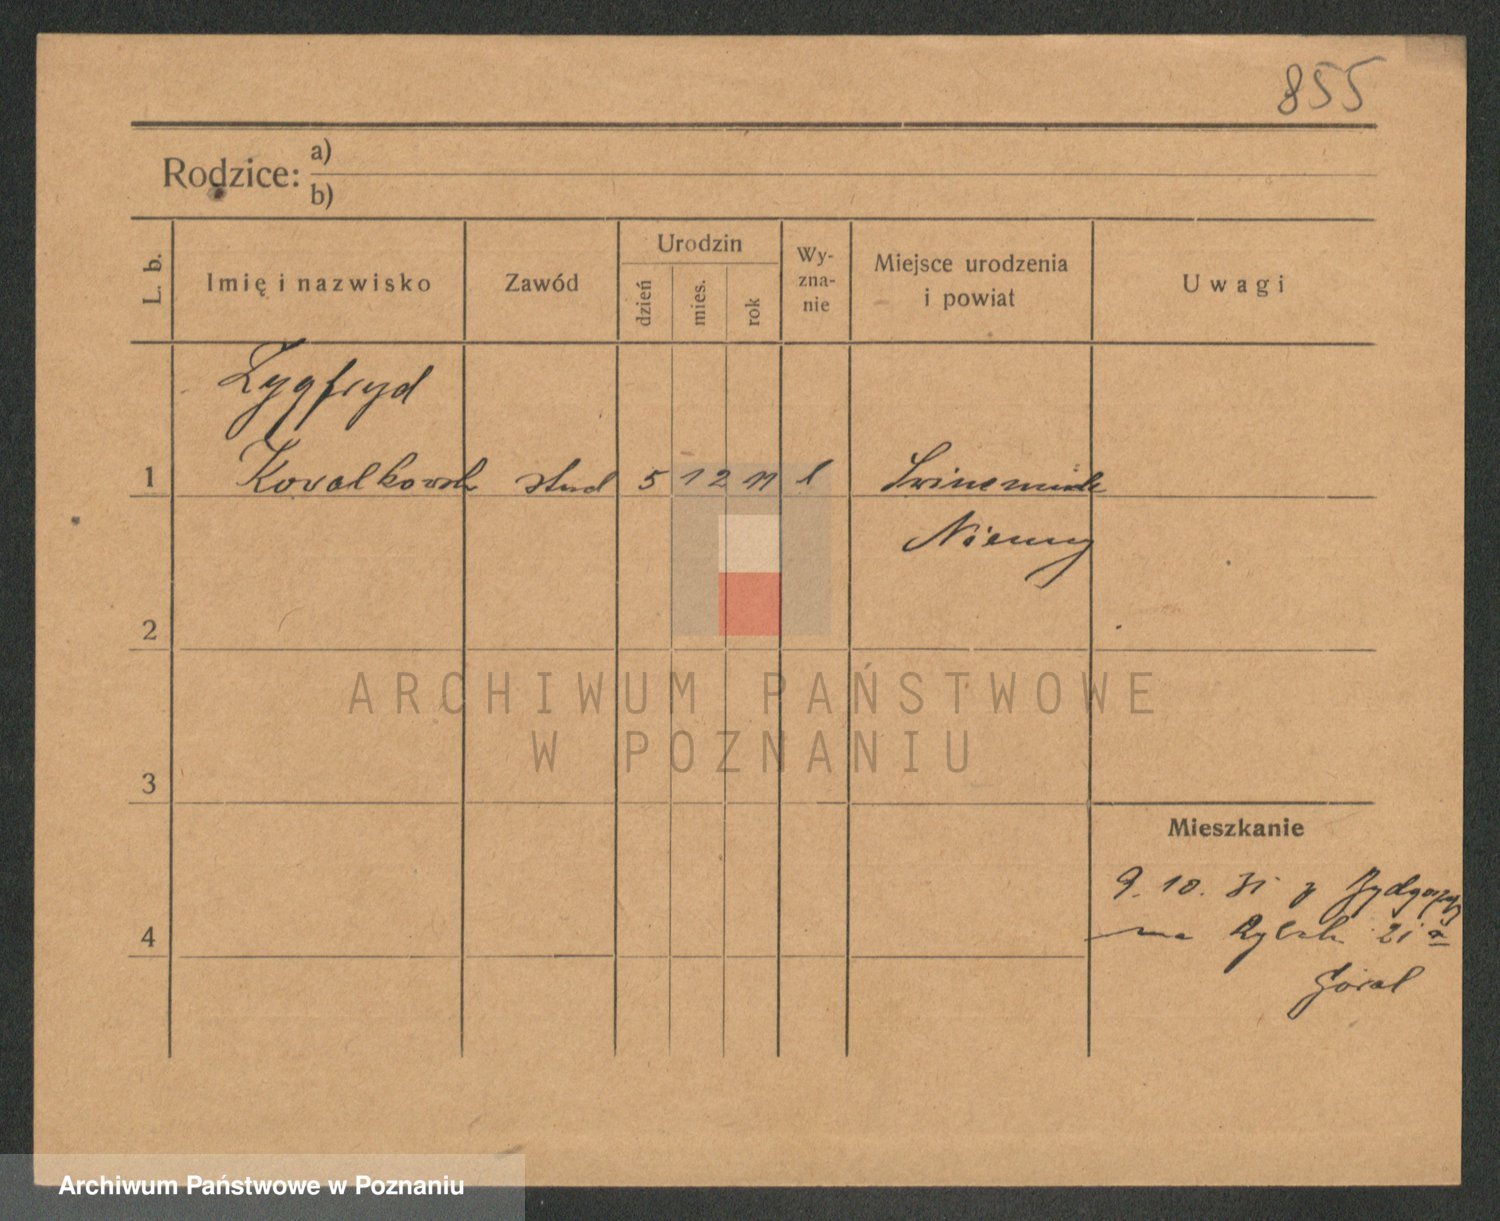 855
Rodzice: a)
b)
L. b.
Imię i nazwisko
Zawód
Urodzin
dzień
mies.
rok
Wy-
zna-
nie
Miejsce urodzenia
i powiat
Uwagi
Zygfryd
1 Kowalkowski stud 5 12 11
Niemcy
2
3
4
Mieszkanie
9. 10. 31 z Bydgoszczy
na 21 a
Góral
ARCHIWUM PAŃSTWOWE
W POZNANIU
Archiwum Państwowe w Poznaniu